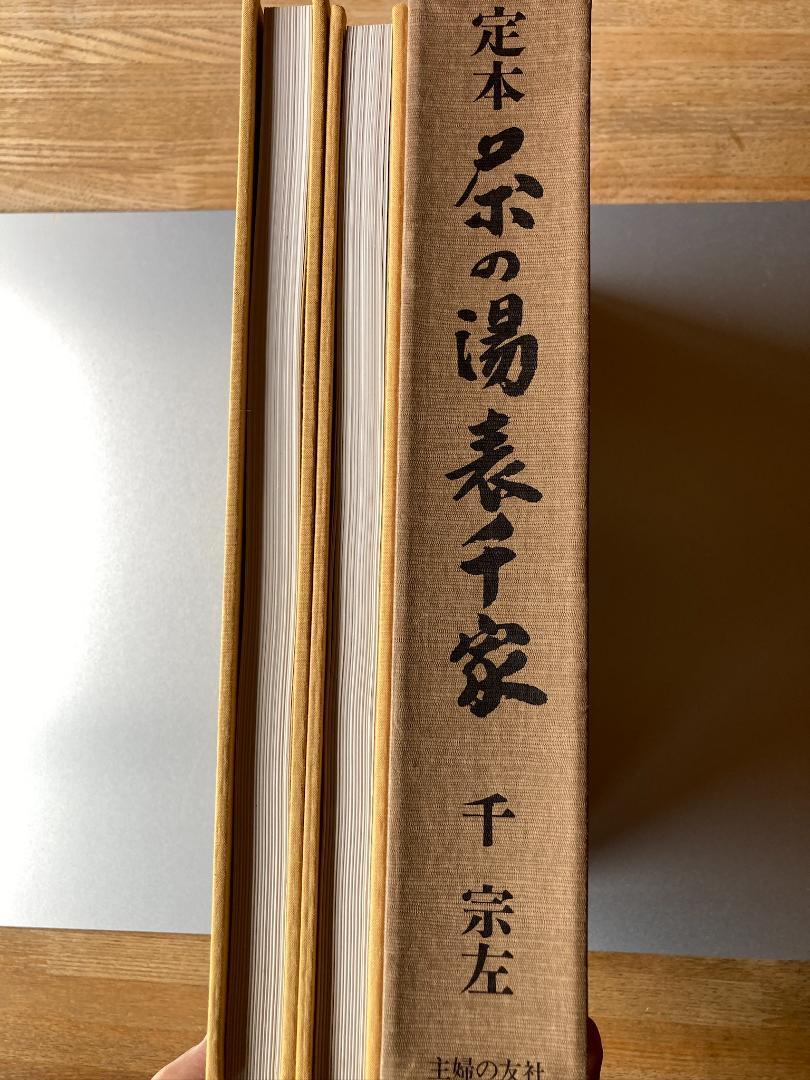 定本
茶の湯表千家
千宗左
主婦の友社